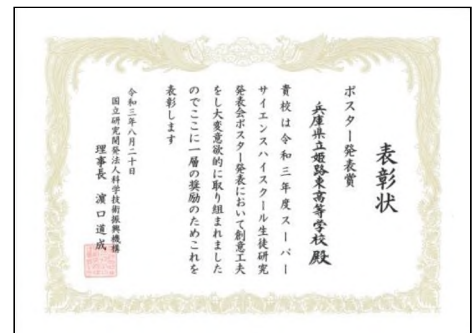 表彰状
ポスター発表賞
兵庫県立姫路東高等学校 殿
貴校は令和三年度スーパー
サイエンスハイスクール生徒研究
発表会ポスター発表において創意工夫
をし大変意欲的に取り組まれました
のでここに一層の奨励のためこれを
表彰します
令和三年八月二十日
国立研究開発法人科学技術振興機構
理事長 濵口道成